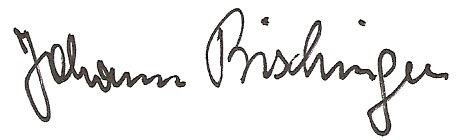 Johann Bischinger